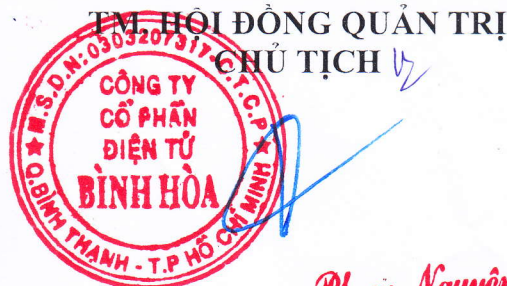 TM. HỘI ĐỒNG QUẢN TRỊ
CHỦ TỊCH
M.S.D.N:0303207317-C.T.C.P
CÔNG TY
CỔ PHẦN
ĐIỆN TỬ
BÌNH HÒA
Q.BÌNH THẠNH - T.P HỒ CHÍ MINH
Nguyên